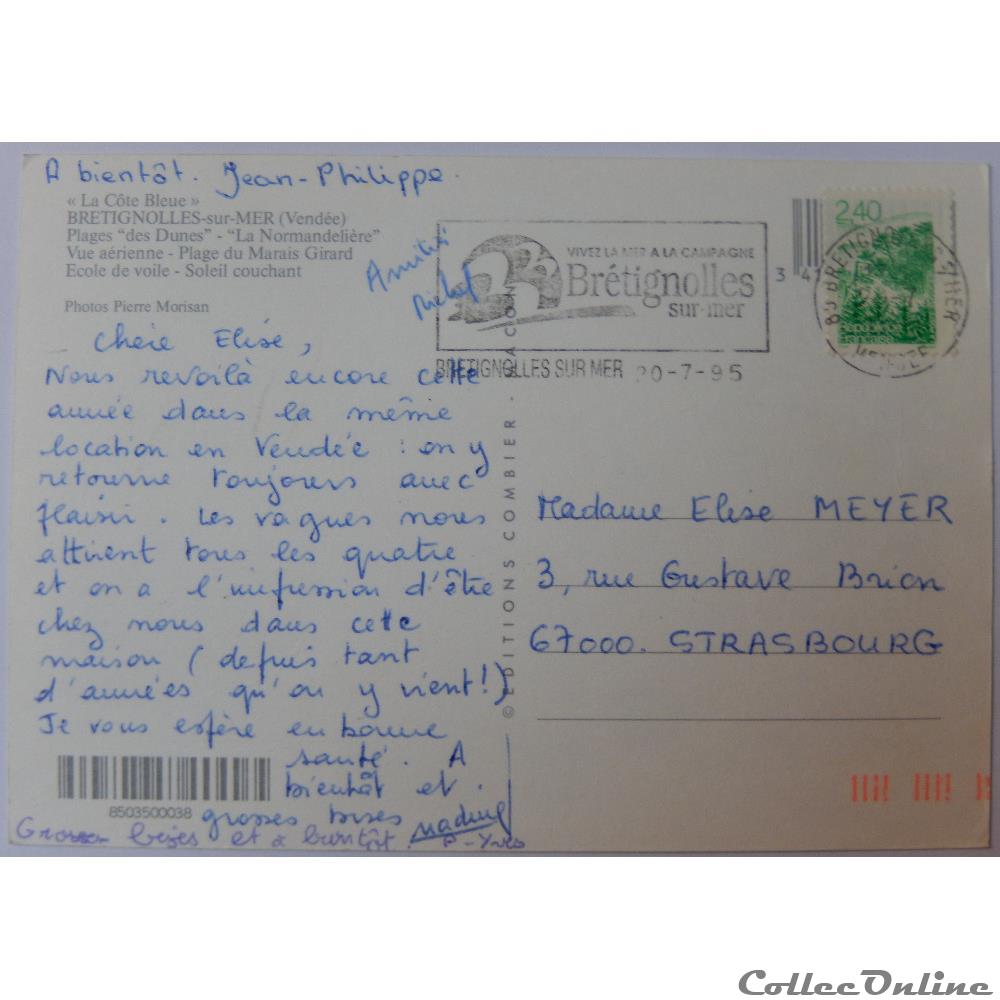 A bientôt. Jean-Philippe.
« La Côte Bleue »
BRETIGNOLLES-sur-MER (Vendée)
Plages "des Dunes" - "La Normandelière"
Vue aérienne - Plage du Marais Girard
Ecole de voile - Soleil couchant
Photos Pierre Morisan
Chère Elise,
Nous revoilà encore cette
année dans la même
location en Vendée : on y
retourne toujours avec
plaisir. Les vagues nous
attirent tous les quatre
et on a l'impression d'être
chez nous dans cette
maison (depuis tant
d'années qu'on y vient!)
Je vous espère en bonne
santé. A
bientôt et
grosses bises
8503500038
Grosses bises et à bientôt. P-Yves
© EDITIONS COMBIER - MACON
VIVEZ LA MER A LA CAMPAGNE
Brétignolles
sur-mer
BRETIGNOLLES SUR MER 20-7-95
3
2,40
République
Française
Madame Elise MEYER
3, rue Gustave Brion
67000. STRASBOURG
CollecOnline